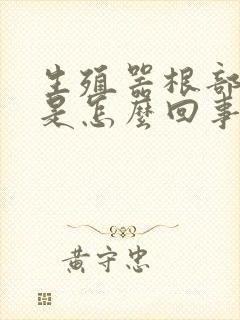 生殖器根部
是怎麼回事
黃守忠